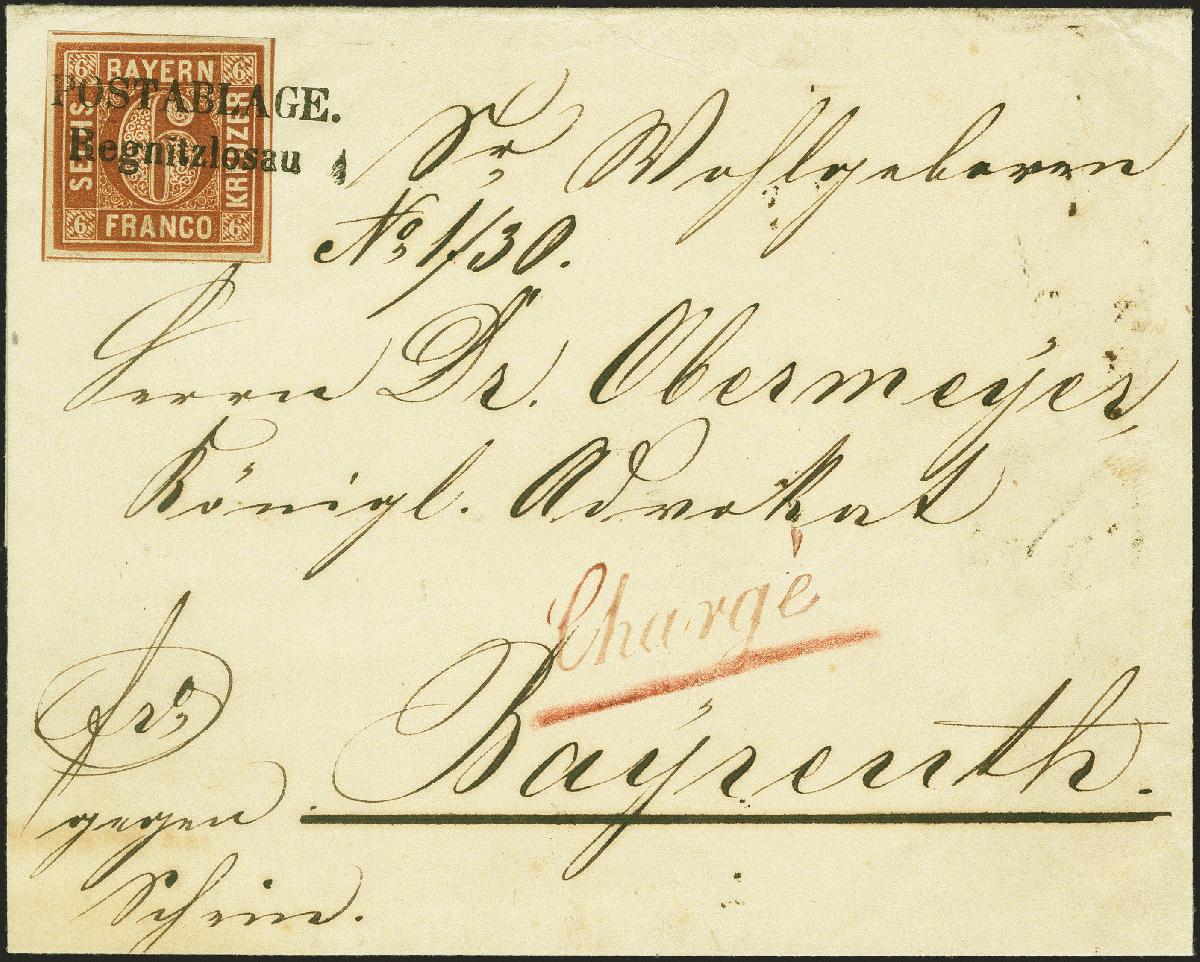 6 BAYERN 6
SECHS
6
KREUZER
6 FRANCO 6
POSTABLAGE.
Regnitzlosau
Sr Wohlgeboren
No 1/30.
Herrn Dr. Obermeÿer,
Königl. Advokat
Chargé
Baÿreuth.
fro
gegen
Schein.